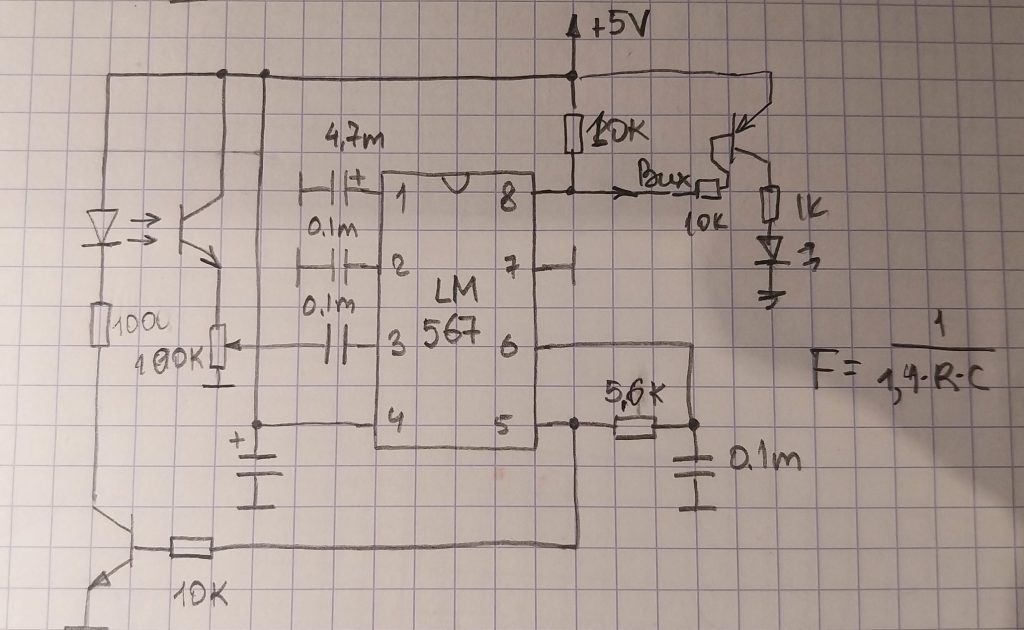 +5V
10K
4,7m
+
1
8
Вих
10K
1K
0.1m
2
7
LM
567
0.1m
100
100K
3
6
F = 1 / 1,4·R·C
5,6K
+
4
5
0.1m
10K